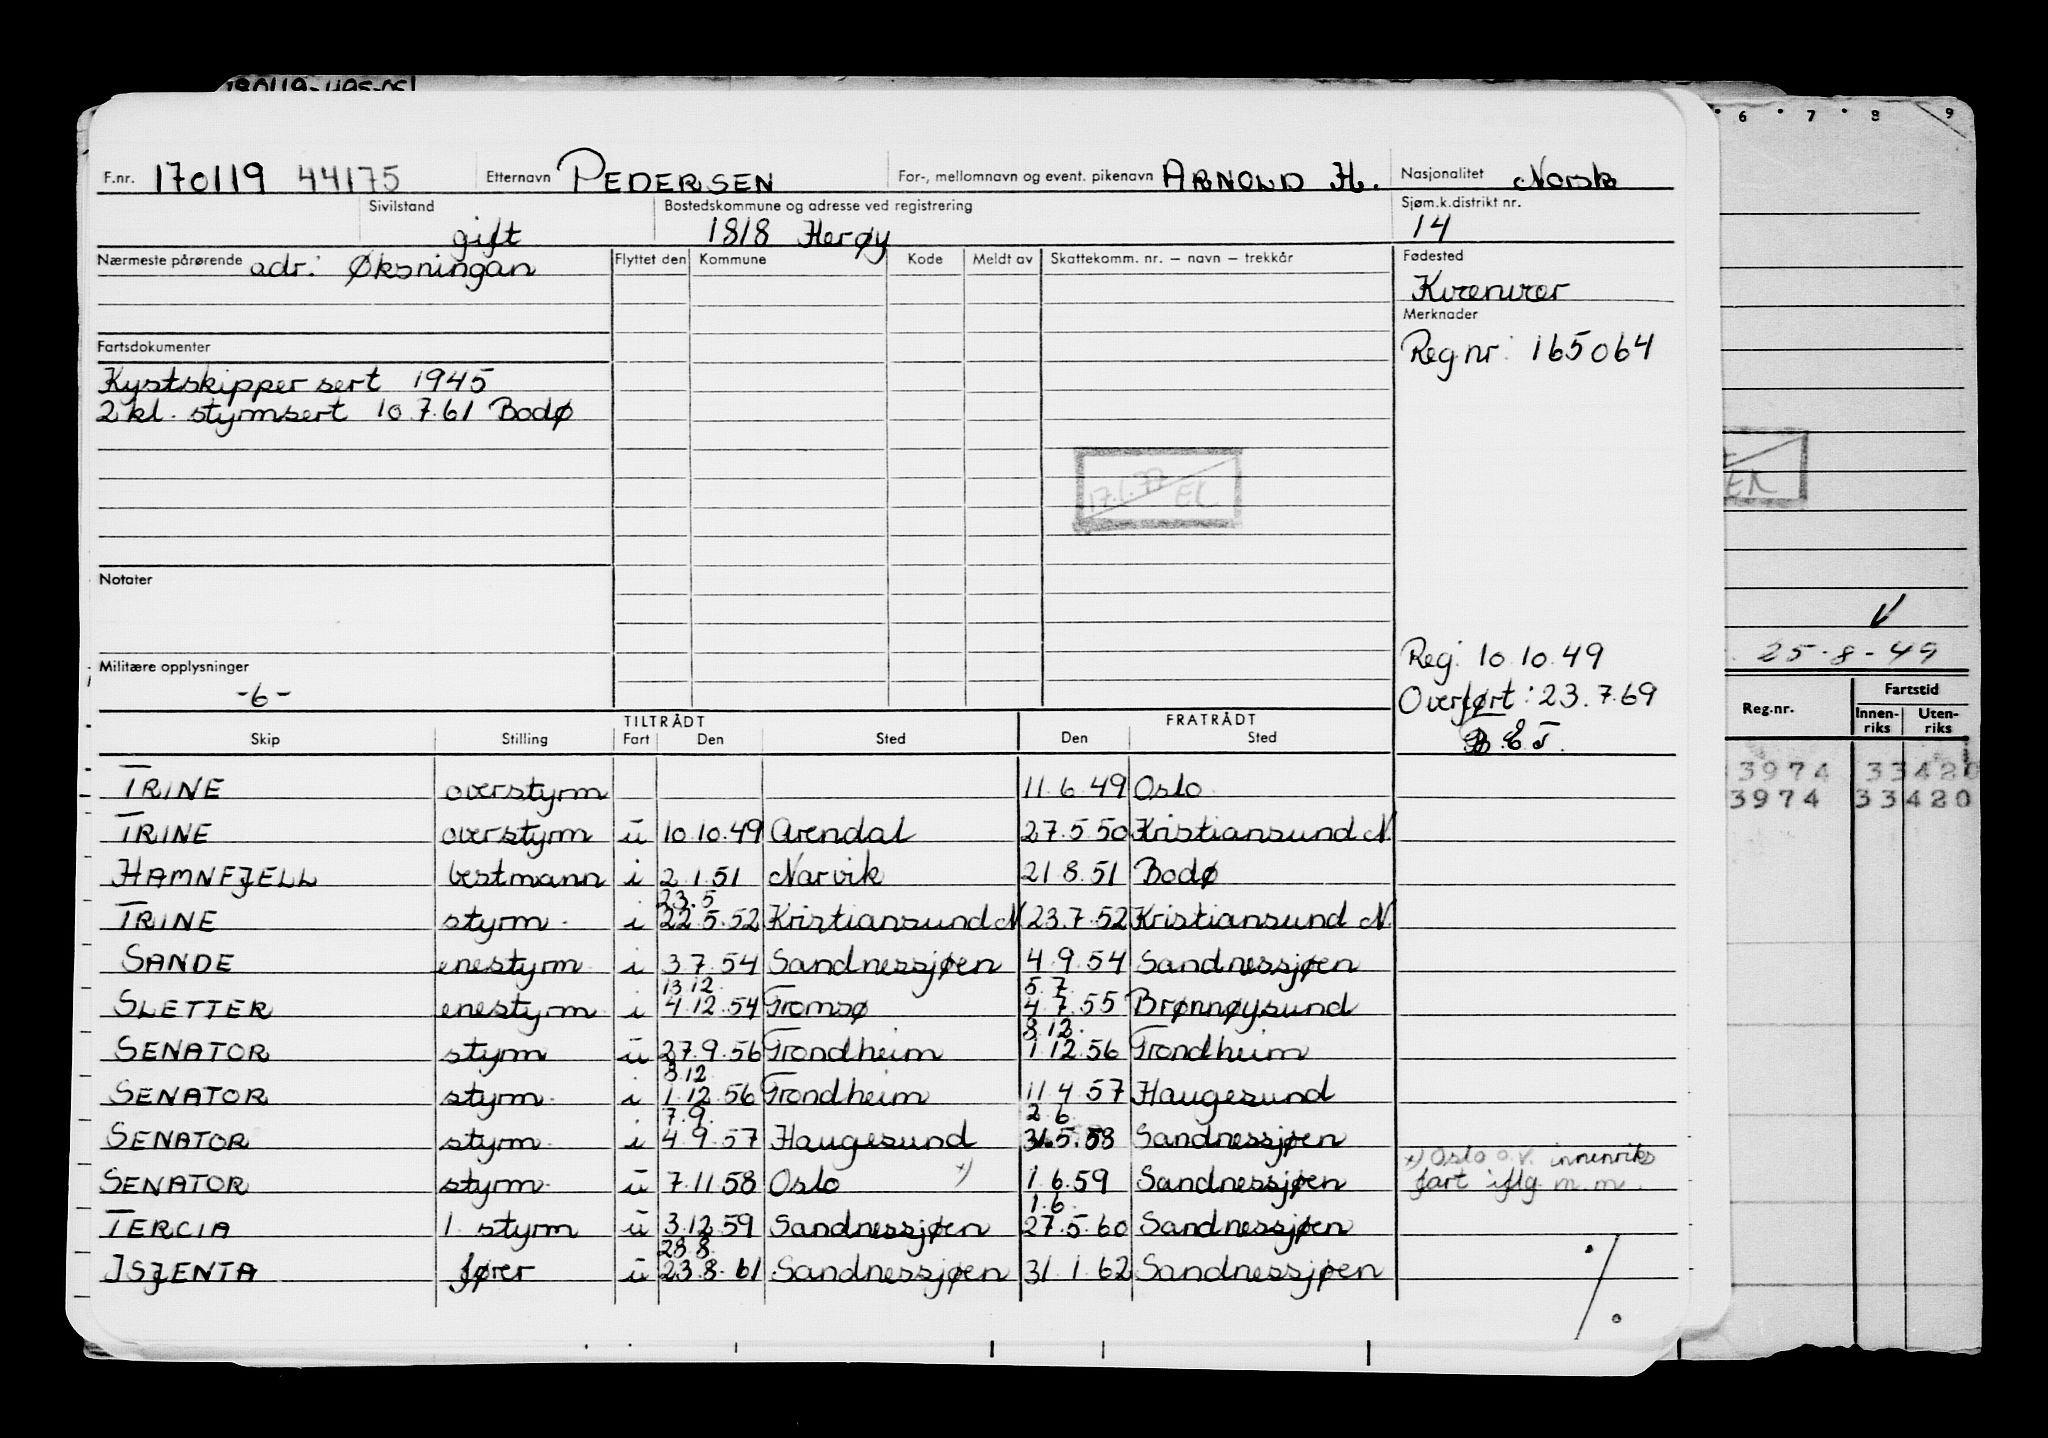 F.nr. 170119 44175 Etternavn PEDERSEN For-, mellomnavn og event. pikenavn ARNOLD H. Nasjonalitet Norsk
Sivilstand gift Bostedskommune og adresse ved registrering 1818 Herøy Sjøm.k.distrikt nr. 14
Nærmeste pårørende adr: Øksningan Flyttet den Kommune Kode Meldt av Skattekomm. nr. – navn – trekkår Fødested
Kvenvær
Merknader
Reg nr: 165064
Fartsdokumenter
Kystskippersert 1945
2 kl. styrmsert 10.7.61 Bodø
17.1.77 EL
Notater
Reg. 10.10.49
Militære opplysninger
-6-
Overført: 23.7.69
B.E.T.
TILTRÅDT FRATRÅDT
Skip Stilling Fart Den Sted Den Sted
TRINE overstyrm 11.6.49 Oslo
TRINE overstyrm u 10.10.49 Arendal 27.5.50 Kristiansund N.
HAMNFJELL bestmann i 2.1.51 Narvik 21.8.51 Bodø
23.5
TRINE styrm i 22.5.52 Kristiansund N 23.7.52 Kristiansund N.
SANDE enestyrm i 3.7.54 Sandnessjøen 4.9.54 Sandnessjøen
13.12. 5.7.
SLETTER enestyrm i 4.12.54 Tromsø 4.7.55 Brønnøysund
8.12.
SENATOR styrm u 27.9.56 Trondheim 1.12.56 Trondheim
8.12
SENATOR styrm i 1.12.56 Trondheim 11.4.57 Haugesund
7.9. 2.6
SENATOR styrm i 4.9.57 Haugesund 31.5.58 Sandnessjøen
x) Oslo o.v. innenriks
SENATOR styrm u 7.11.58 Oslo x) 1.6.59 Sandnessjøen fart iflg m.m.
1.6.
TERCIA 1. styrm u 3.12.59 Sandnessjøen 27.5.60 Sandnessjøen
28.8.
ISJENTA fører u 23.8.61 Sandnessjøen 31.1.62 Sandnessjøen
./.
6 7 8 9
25-8-49
Reg.nr. Fartstid
Innen-riks Uten-riks
3974 33420
3974 33420